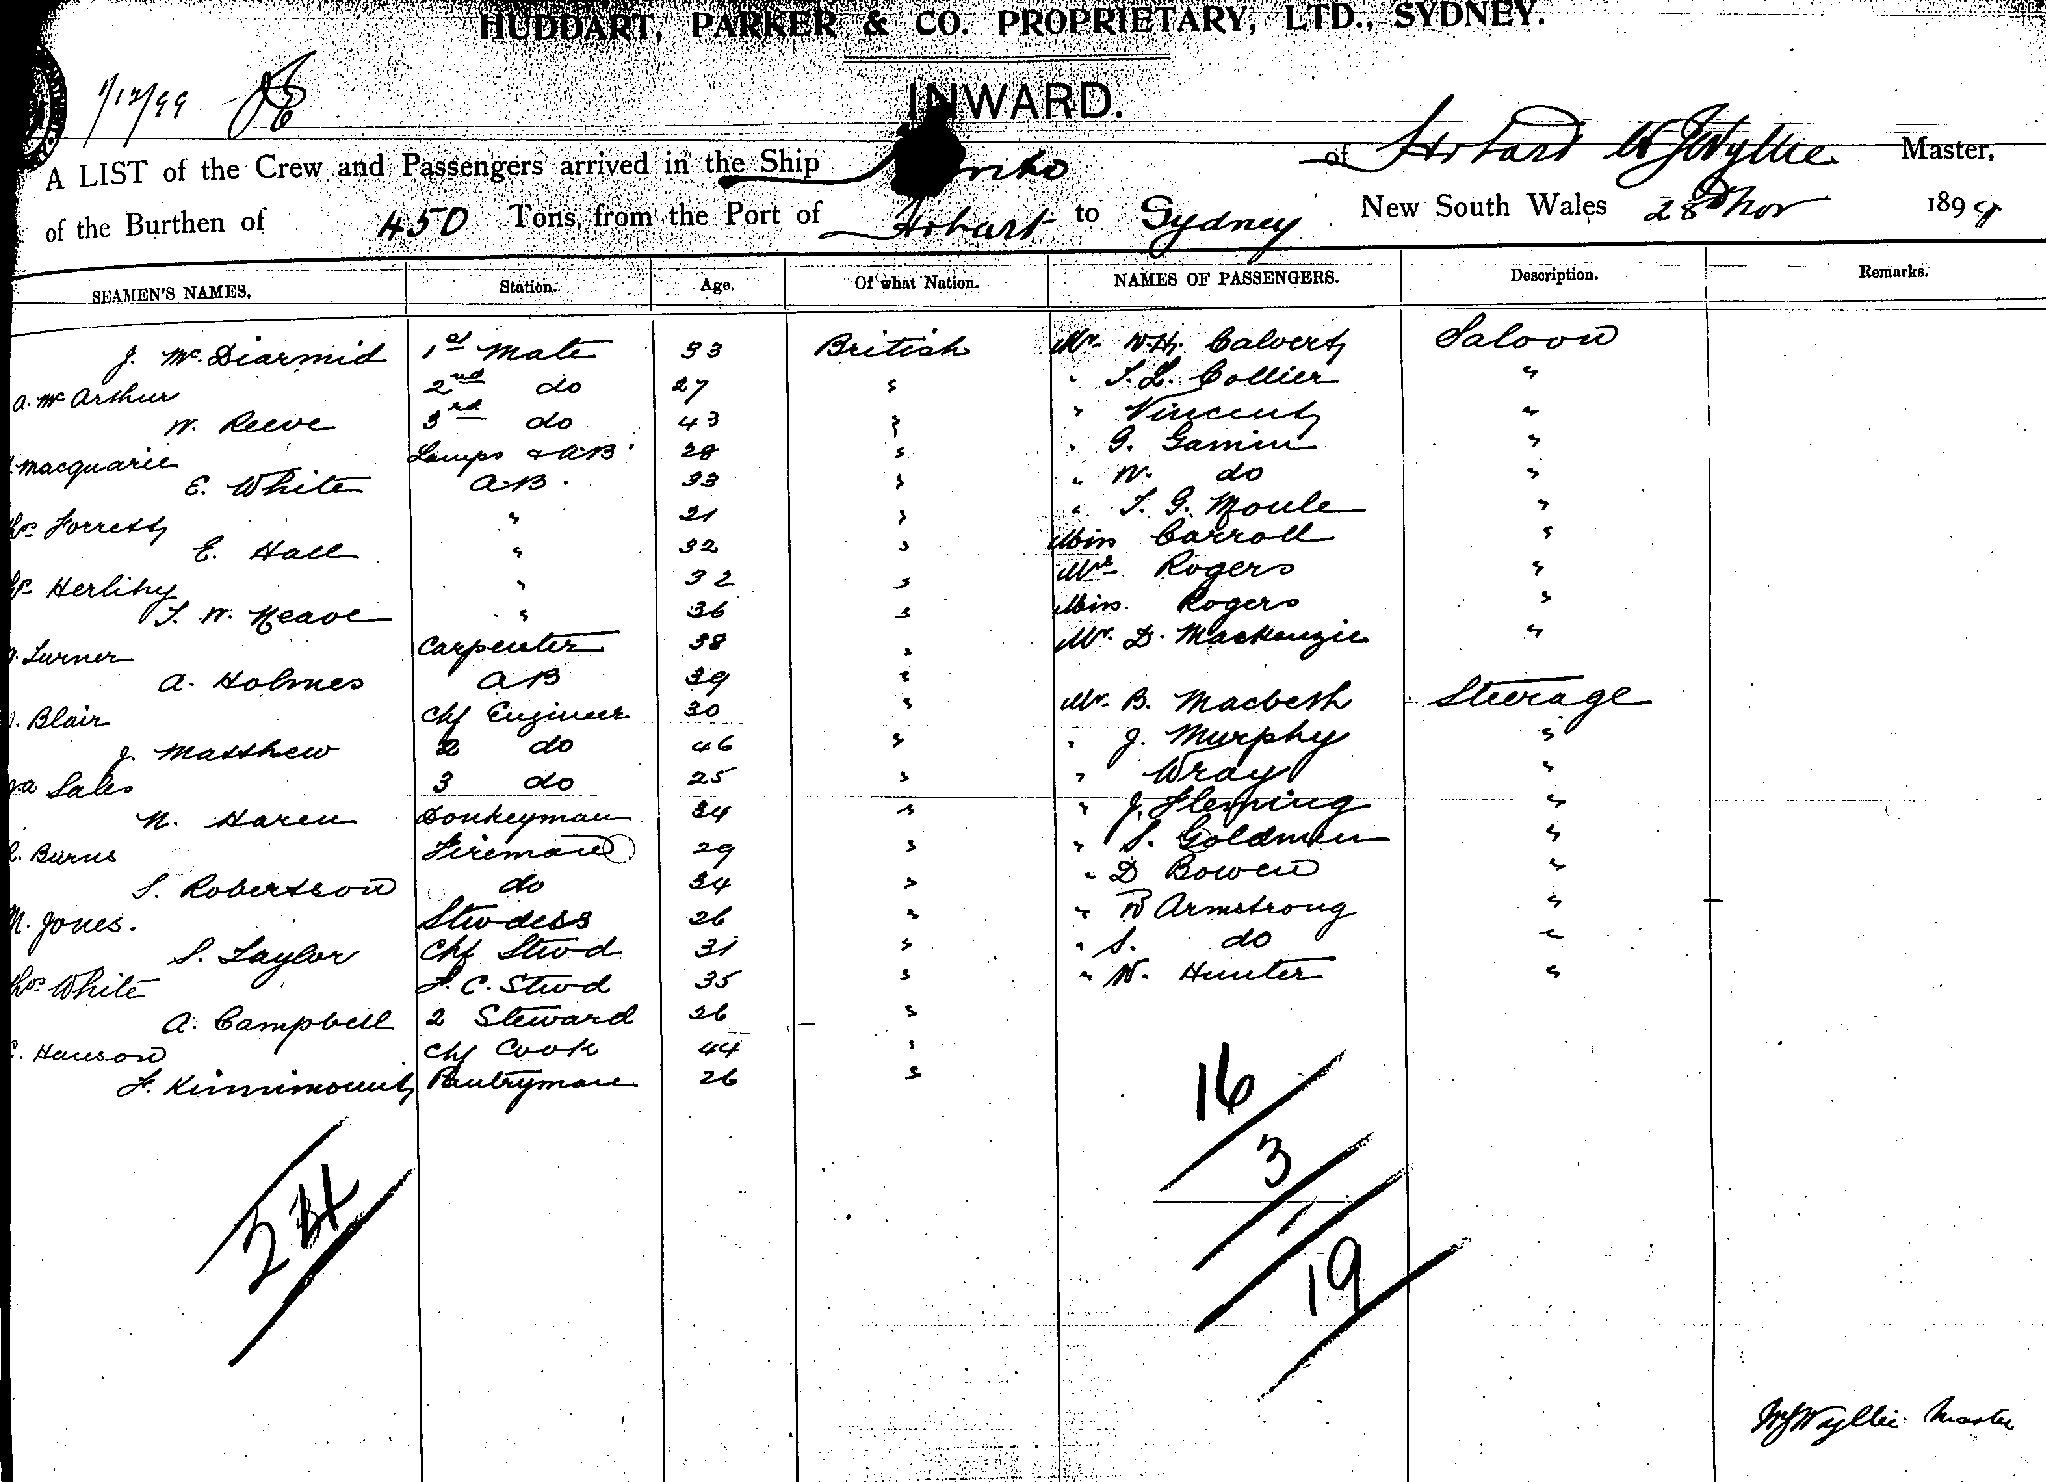 HUDDART, PARKER & CO. PROPRIETARY, LTD., SYDNEY.
1/12/99
INWARD.
A LIST of the Crew and Passengers arrived in the Ship of Hobart W J Wyllie Master,
of the Burthen of 450 Tons, from the Port of Hobart to Sydney New South Wales 28th Nov 1899
SEAMEN'S NAMES. Station. Age. Of what Nation. NAMES OF PASSENGERS. Description. Remarks.
J. McDiarmid 1st Mate 33 British Mr. W.H. Calvert Saloon
A. McArthur 2nd do 27 " " T.L. Collier "
W. Reeve 3rd do 43 " " Vincent "
Macquarie Lamps & AB 28 " " G. Gamin "
E. White AB 33 " " W. do "
Forrest " 21 " " T. G. Moule "
E. Hall " 32 " Miss Carroll "
Herlihy " 32 " Mrs Rogers "
T. W. Neave " 36 " Miss Rogers "
Turner Carpenter 38 " Mr. D. Mackenzie "
A. Holmes AB 39 "
Blair Chf Engineer 30 " Mr. B. Macbeth Steerage
J. Matthew 2 do 46 " " J. Murphy "
Sales 3 do 25 " " Wray "
N. Haren Donkeyman 34 " " J. Fleming "
Burns Fireman 29 " " S. Goldman "
S. Robertson do 34 " " D Bowen "
M. Jones. Stwdess 26 " " R Armstrong "
S. Taylor Chf Stwd 31 " " S. do "
Thos White F.C. Stwd 35 " " W. Hunter "
A. Campbell 2 Steward 26 "
Hanson Chf Cook 44 "
F. Kinnimount Pantryman 26 "
16
3
24
19
WJ Wyllie Master